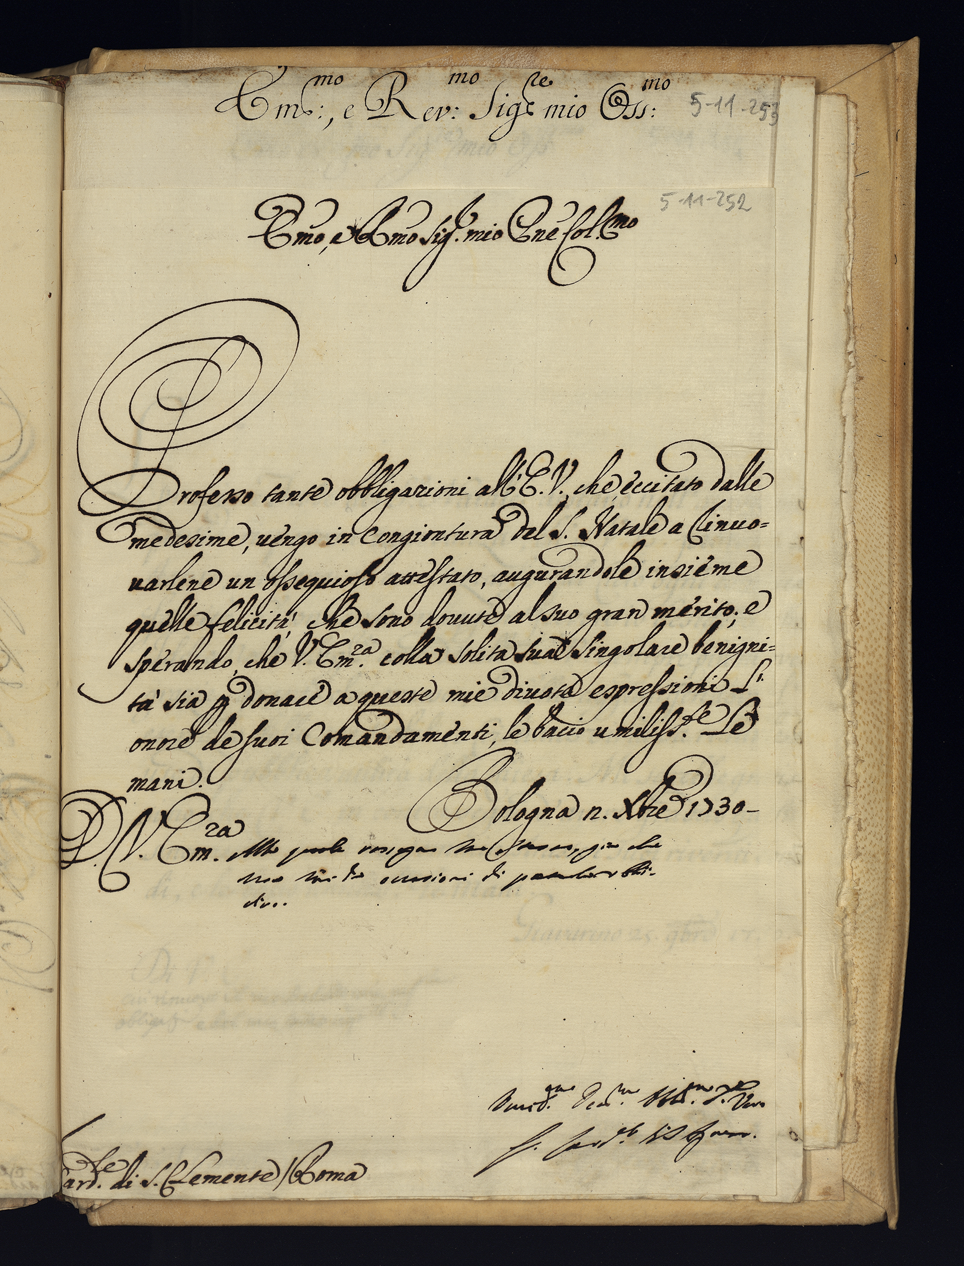 Em:mo, e Rev:mo Sig:re mio Oss:mo
5-11-253
5-11-252
Emo, e Rmo Sig.r mio Pne Col.mo
Professo tante obbligazioni all'E.V., che, eccitato dalle
medesime, vengo in congiontura del S. Natale a rinuo=
varlene un ossequioso attestato, augurandole insieme
quelle felicità, che sono dovute al suo gran merito; e
sperando, che V. Em.za colla solita sua singolare benigni=
tà sia p donare a queste mie divote espressioni l'
onore de suoi Comandamenti, le bacio umiliss.te le
mani.
Bologna n. Xbre 1730-
D. V. Em.za
occasioni di
Card.le di S. Clemente / Roma